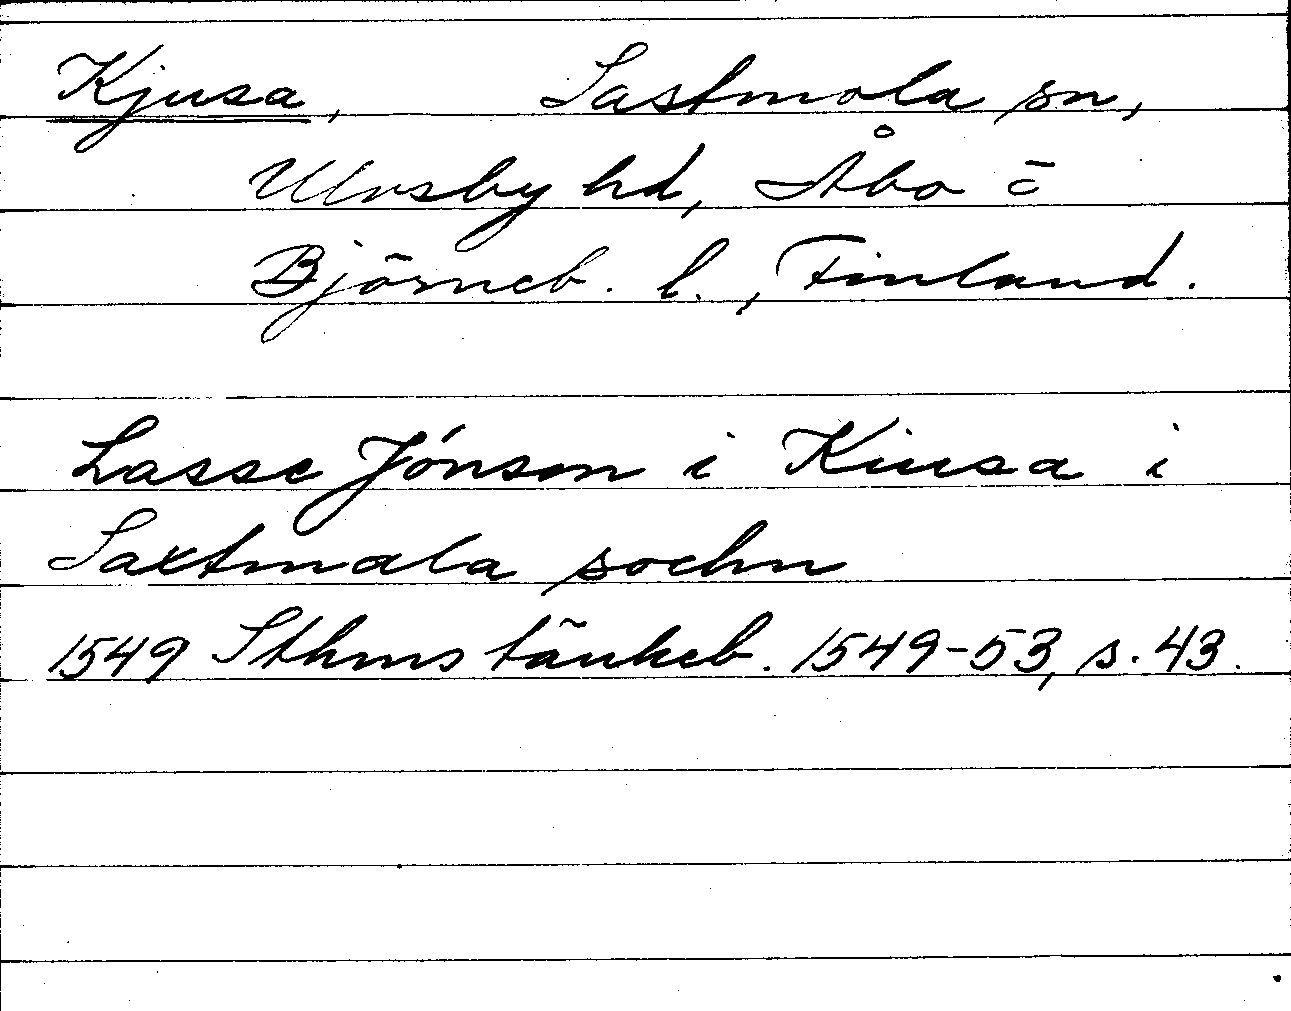 Kjusa, Sastmola sn,
Ulvsby hd, Åbo o
Björneb. l., Finland.
Lasse Jónson i Kiusa i
Saxtmala sochn
1549 Sthms tänkeb. 1549-53, s. 43.